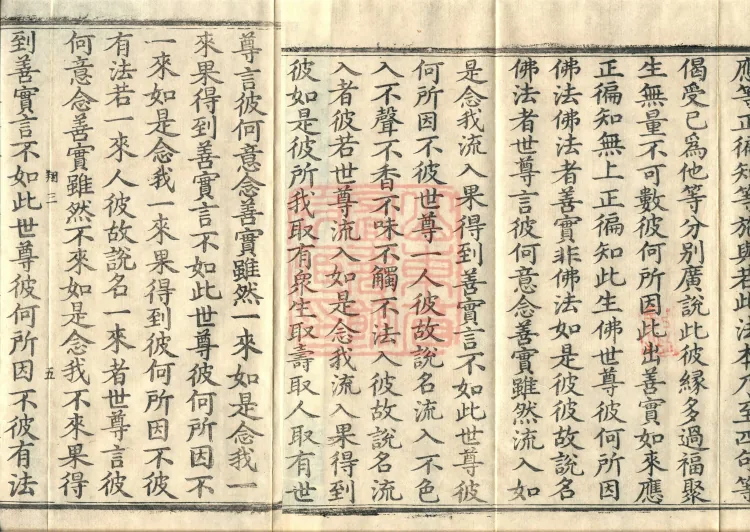 應等正徧知等施與若此法本乃至四句等
偈受已爲他等分别廣說此彼緣多過福聚
生無量不可數彼何所因此出善實如來應
正徧知無上正徧知此生佛世尊彼何所因
佛法佛法者善實非佛法如是彼彼故說名
佛法者世尊言彼何意念善實雖然流入如
是念我流入果得到善實言不如此世尊彼
何所因不彼世尊一人彼故說名流入不色
入不聲不香不味不觸不法入彼故說名流
入者彼若世尊流入如是念我流入果得到
彼如是彼所我取有衆生取壽取人取有世
尊言彼何意念善實雖然一來如是念我一
來果得到善實言不如此世尊彼何所因不
一來如是念我一來果得到彼何所因不彼
有法若一來人彼故說名一來者世尊言彼
何意念善實雖然不來如是念我不來果得
翔三 五
到善實言不如此世尊彼何所因不彼有法